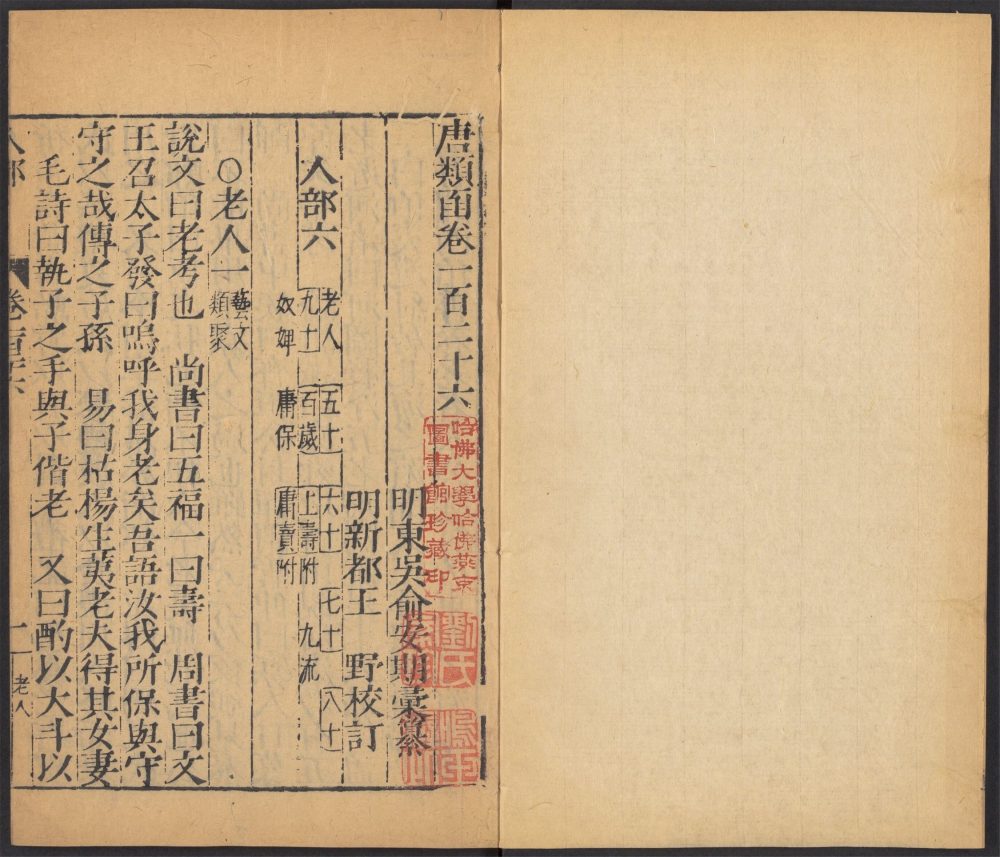 唐類函卷一百二十六
明東吳俞安期彙纂
明新都王　野校訂
人部六
老人　五十　六十　七十　八十
九十　百歲　上壽附　九流
奴婢　庸保　庸賣附
○老人一
藝文
類聚
說文曰老考也　尚書曰五福一曰壽　周書曰文
王召太子發曰嗚呼我身老矣吾語汝我所保與守
守之哉傳之子孫　易曰枯楊生荑老夫得其女妻
毛詩曰執子之手與子偕老　又曰酌以大斗以
人部　卷一百二十六　一　老人
哈佛大學哈佛燕京
圖書館珍藏印
劉氏